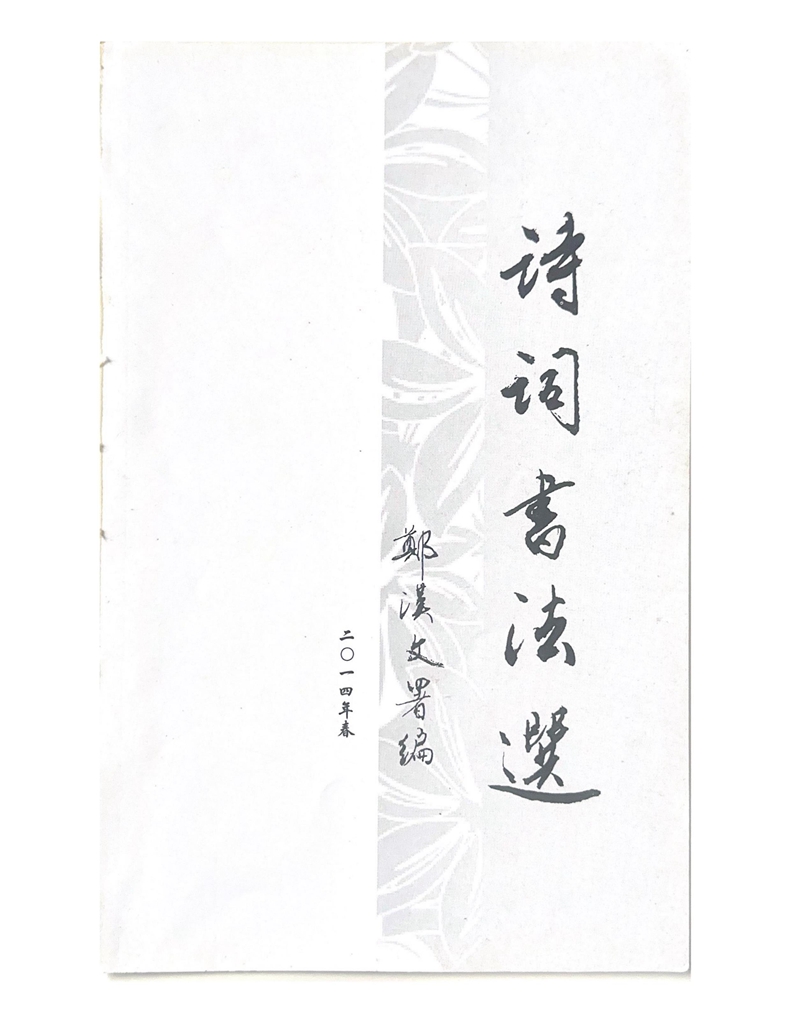 詩詞書法選
鄭漢文署編
二〇一四年春